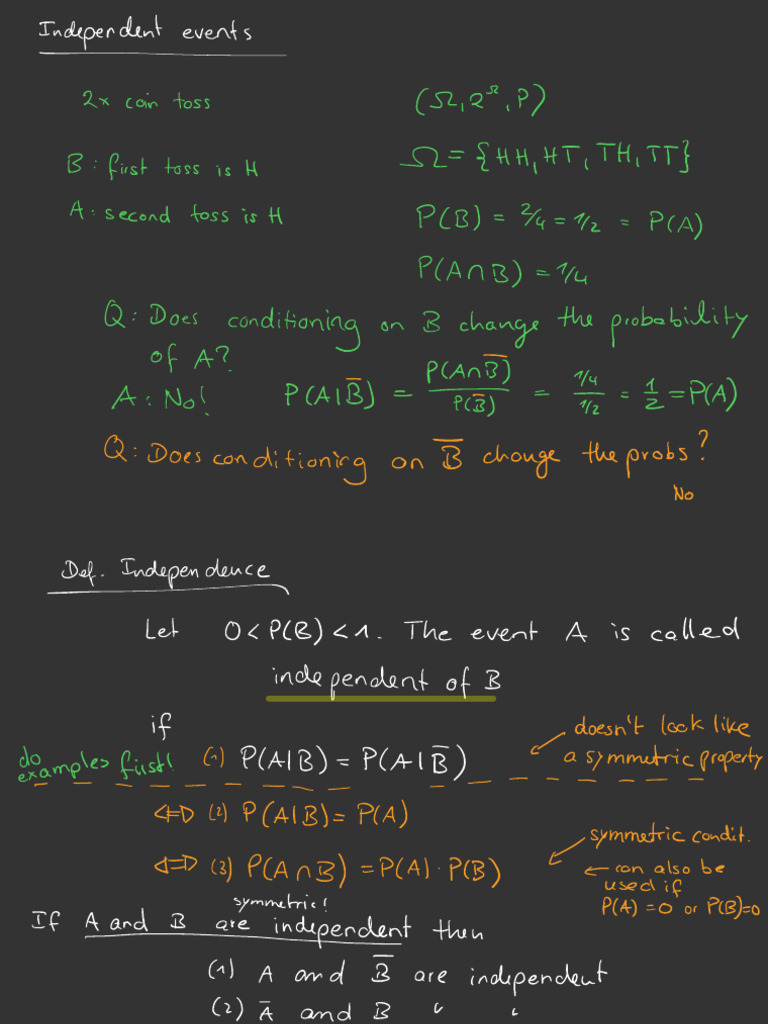 Independent events
2x coin toss
(Ω, 2^Ω, P)
B: first toss is H
Ω = {HH, HT, TH, TT}
A: second toss is H
P(B) = 2/4 = 1/2 = P(A)
P(A∩B) = 1/4
Q: Does conditioning on B change the probability
of A?
A: No!
P(A|B̅) = P(A∩B̅)/P(B̅) = (1/4)/(1/2) = 1/2 = P(A)
Q: Does conditioning on B̅ change the probs?
No
Def. Independence
Let 0 < P(B) < 1. The event A is called
independent of B
if
do
examples first!
(1) P(A|B) = P(A|B̅)
doesn't look like
a symmetric property
⇔ (2) P(A|B) = P(A)
⇔ (3) P(A∩B) = P(A)·P(B)
symmetric condit.
← can also be
used if
P(A) = 0 or P(B)=0
symmetric!
If A and B are independent then
(1) A and B̅ are independent
(2) A̅ and B " "